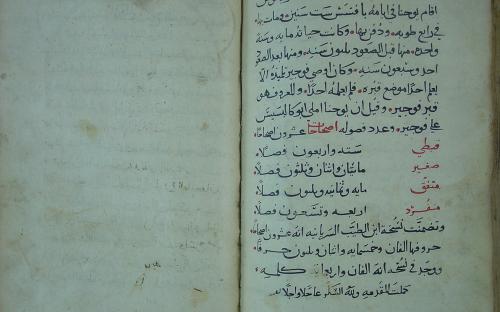 اقام يوحنا في ايامه بافسس ست سنين. ومات
في رابع طوبه. ودفن بها. وكانت حياته مايه وسنه
واحده. منها قبل الصعود ثلثون سنه. ومنها بعد الصعود
احد وسبعون سنه. وكان اوصى تلميذه الا
يعلم احدا موضع قبره. فلم يعلمه احدا. والمعروف هو
قبر فوجير. وقيل ان يوحنا املى
على فوجير. وعدد فصوله اصحاحات عشرون اصحاحا.
قبطي سته واربعون فصلا.
صغير مايتان واثنان وثلثون فصلا.
متفق مايه وثمانيه وثلثون فصلا.
منفرد اربعه وتسعون فصلا.
وتضمنت نسخة ابن الطيب السريانيه انه عشرون اصحاحا.
حروفها الفان وخمسمايه واثنان وثلثون حرفا.
ووجد في نسخه انه الفان واربعون كلمه
كملت المقدمه ولله الشكر عاجلا واجلا